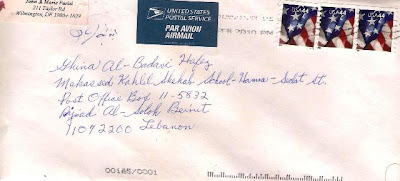 John & Marie Farial
211 Taylor Rd
Wilmington, DE 19804-1024
UNITED STATES
POSTAL SERVICE
PAR AVION
AIRMAIL
USA 44
USA 44
USA 44
2010 PM
Ghina Al-Badawi Hafez
Makassed Kahlil Shehab School-Hanna-Sedat st.
Post Office Box 11-5832
Riad Al-Soloh Beirut
11072200 Lebanon
00185/0001